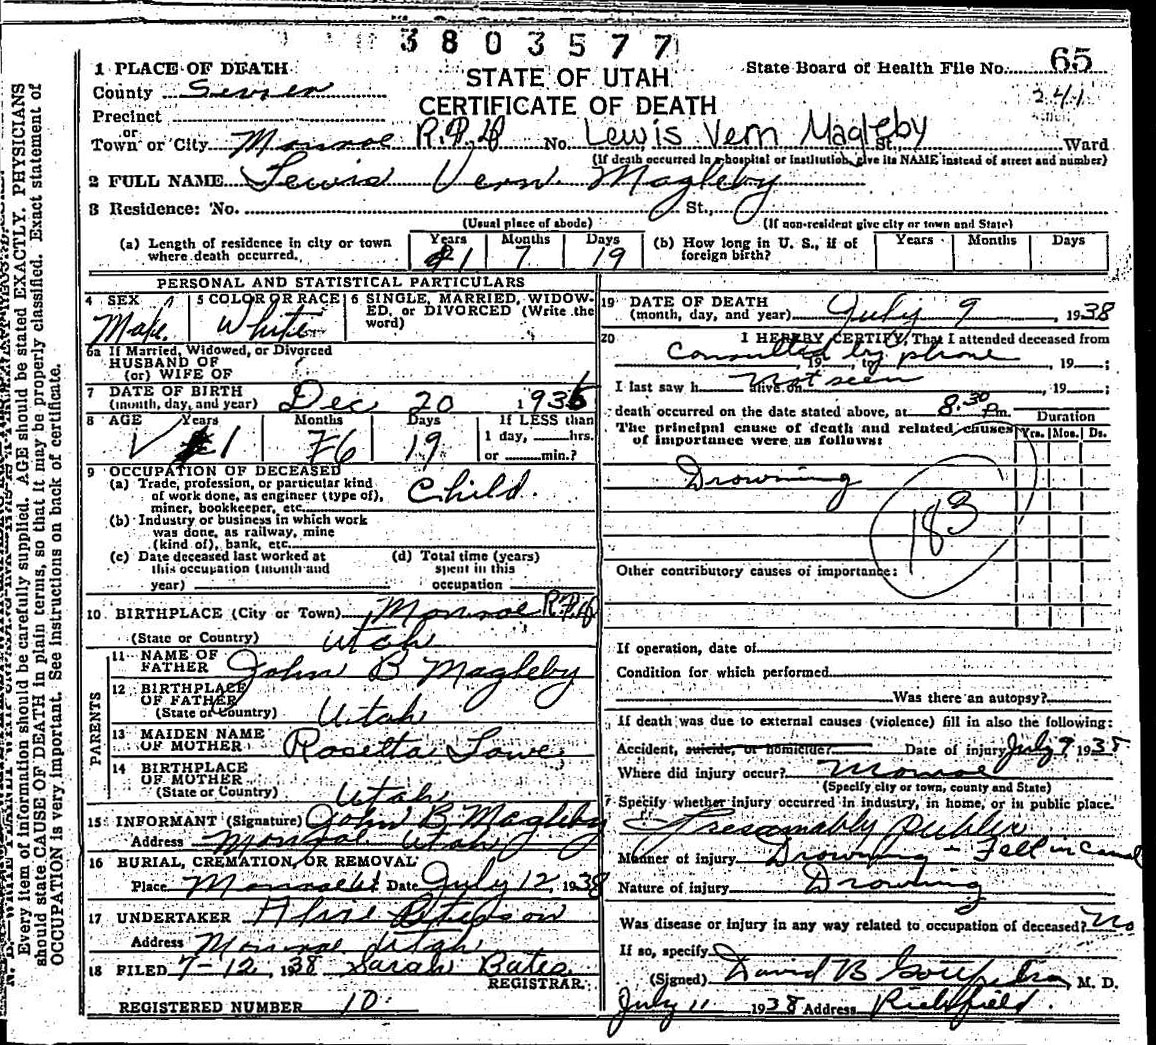 3803577
1 PLACE OF DEATH
STATE OF UTAH
State Board of Health File No. 65
County Sevier
CERTIFICATE OF DEATH
241
Precinct
or
Town or City Monroe R.F.D. No. Lewis Vern Magleby St., Ward
(If death occurred in a hospital or institution, give its NAME instead of street and number)
2 FULL NAME Lewis Vern Magleby
3 Residence: No. St.,
(Usual place of abode) (If non-resident give city or town and State)
(a) Length of residence in city or town where death occurred. Years 1 Months 7 Days 19
(b) How long in U. S., if of foreign birth? Years Months Days
PERSONAL AND STATISTICAL PARTICULARS
4 SEX Male
5 COLOR OR RACE White
6 SINGLE, MARRIED, WIDOWED, or DIVORCED (Write the word)
6a If Married, Widowed, or Divorced
HUSBAND OF
(or) WIFE OF
7 DATE OF BIRTH
(month, day, and year) Dec 20 1936
8 AGE Years 1 Months 6 Days 19
If LESS than
1 day, hrs.
or min.?
9 OCCUPATION OF DECEASED
(a) Trade, profession, or particular kind
of work done, as engineer (type of),
miner, bookkeeper, etc. Child.
(b) Industry or business in which work
was done, as railway, mine
(kind of), bank, etc.
(c) Date deceased last worked at
this occupation (month and
year)
(d) Total time (years)
spent in this
occupation
10 BIRTHPLACE (City or Town) Monroe R.F.D.
(State or Country) Utah
PARENTS
11 NAME OF
FATHER John B Magleby
12 BIRTHPLACE
OF FATHER
(State or Country) Utah
13 MAIDEN NAME
OF MOTHER Rosetta Lowe
14 BIRTHPLACE
OF MOTHER
(State or Country) Utah
15 INFORMANT (Signature) John B Magleby
Address Monroe Utah
16 BURIAL, CREMATION, OR REMOVAL
Place Monroe Ut Date July 12, 1938
17 UNDERTAKER Peterson
Address Monroe Utah
18 FILED 7-12, 1938 Sarah Bates
REGISTRAR.
REGISTERED NUMBER 10
19 DATE OF DEATH
(month, day, and year) July 9 1938
20 I HEREBY CERTIFY, That I attended deceased from
Consulted by phone, 19, to, 19;
I last saw h alive on Not seen, 19;
death occurred on the date stated above, at 8:30 Pm.
The principal cause of death and related causes
of importance were as follows:
Duration
Yrs. Mos. Ds.
Drowning
183
Other contributory causes of importance:
If operation, date of
Condition for which performed
Was there an autopsy?
If death was due to external causes (violence) fill in also the following:
Accident, suicide, or homicide? Date of injury July 9 1938
Where did injury occur? Monroe
(Specify city or town, county and State)
Specify whether injury occurred in industry, in home, or in public place.
Presamably Public
Manner of injury Drowning - Fell in Canal
Nature of injury Drowning
Was disease or injury in any way related to occupation of deceased? No
If so, specify
(Signed) David B Gottfredson M. D.
July 11 1938 Address Richfield.
Every item of information should be carefully supplied. AGE should be stated EXACTLY. PHYSICIANS
should state CAUSE OF DEATH in plain terms, so that it may be properly classified. Exact statement of
OCCUPATION is very important. See instructions on back of certificate.